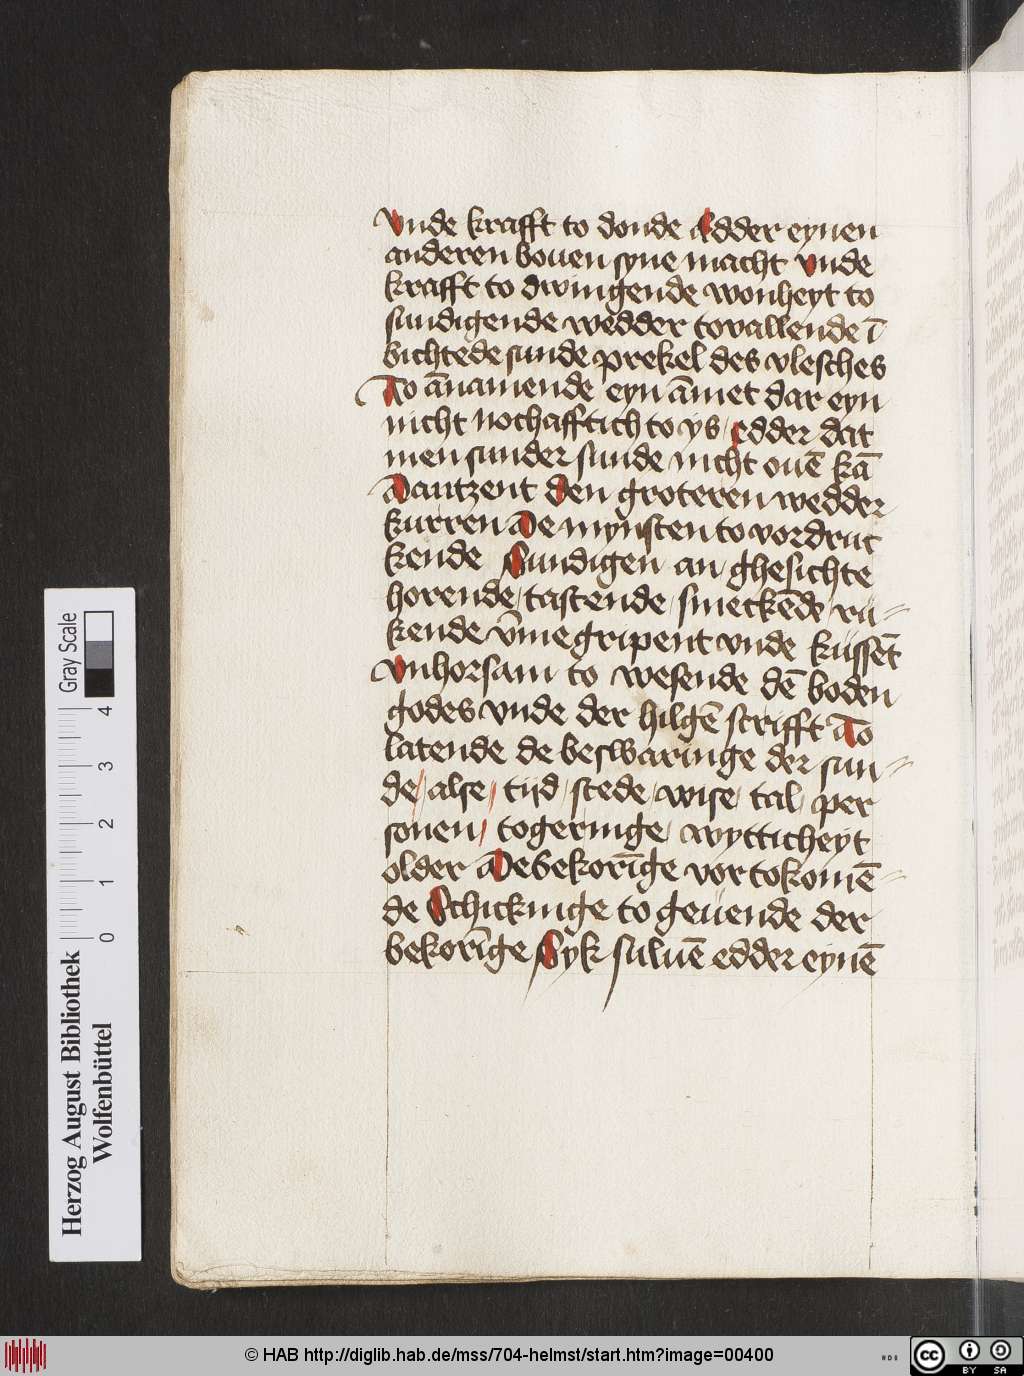 vnde krafft to donde Edder eynen
anderen bouen syne macht vnde
krafft to dwingende wonheyt to
sundigende wedder tovallende ī
bichtede sunde prekel des vlesches
To ānamende eyn āmet dar eyn
nicht nochafftich to ys edder dat
men sunder sunde nicht ouē kā
Dantzent den groteren wedder
kurren De mynsten to vordruc
kende Sundigen an ghesichte
horende / tastende / smeckēde / rü⸗
kende v̄megripent vnde küssēt
vnhorsam to wesende dē boden
godes vnde der hilgē scrifft To
latende de beswaringe der sun⸗
de / alse / tijd / stede / wise / tal / per
sonen / togeringe / wytticheyt
older De bekorīge vortokomē⸗
de Schickinge to geüende der
bekorīge Syk suluē edder eynē
Herzog August Bibliothek
Wolfenbüttel
0 1 2 3 4
Gray Scale
© HAB http://diglib.hab.de/mss/704-helmst/start.htm?image=00400
cc BY SA